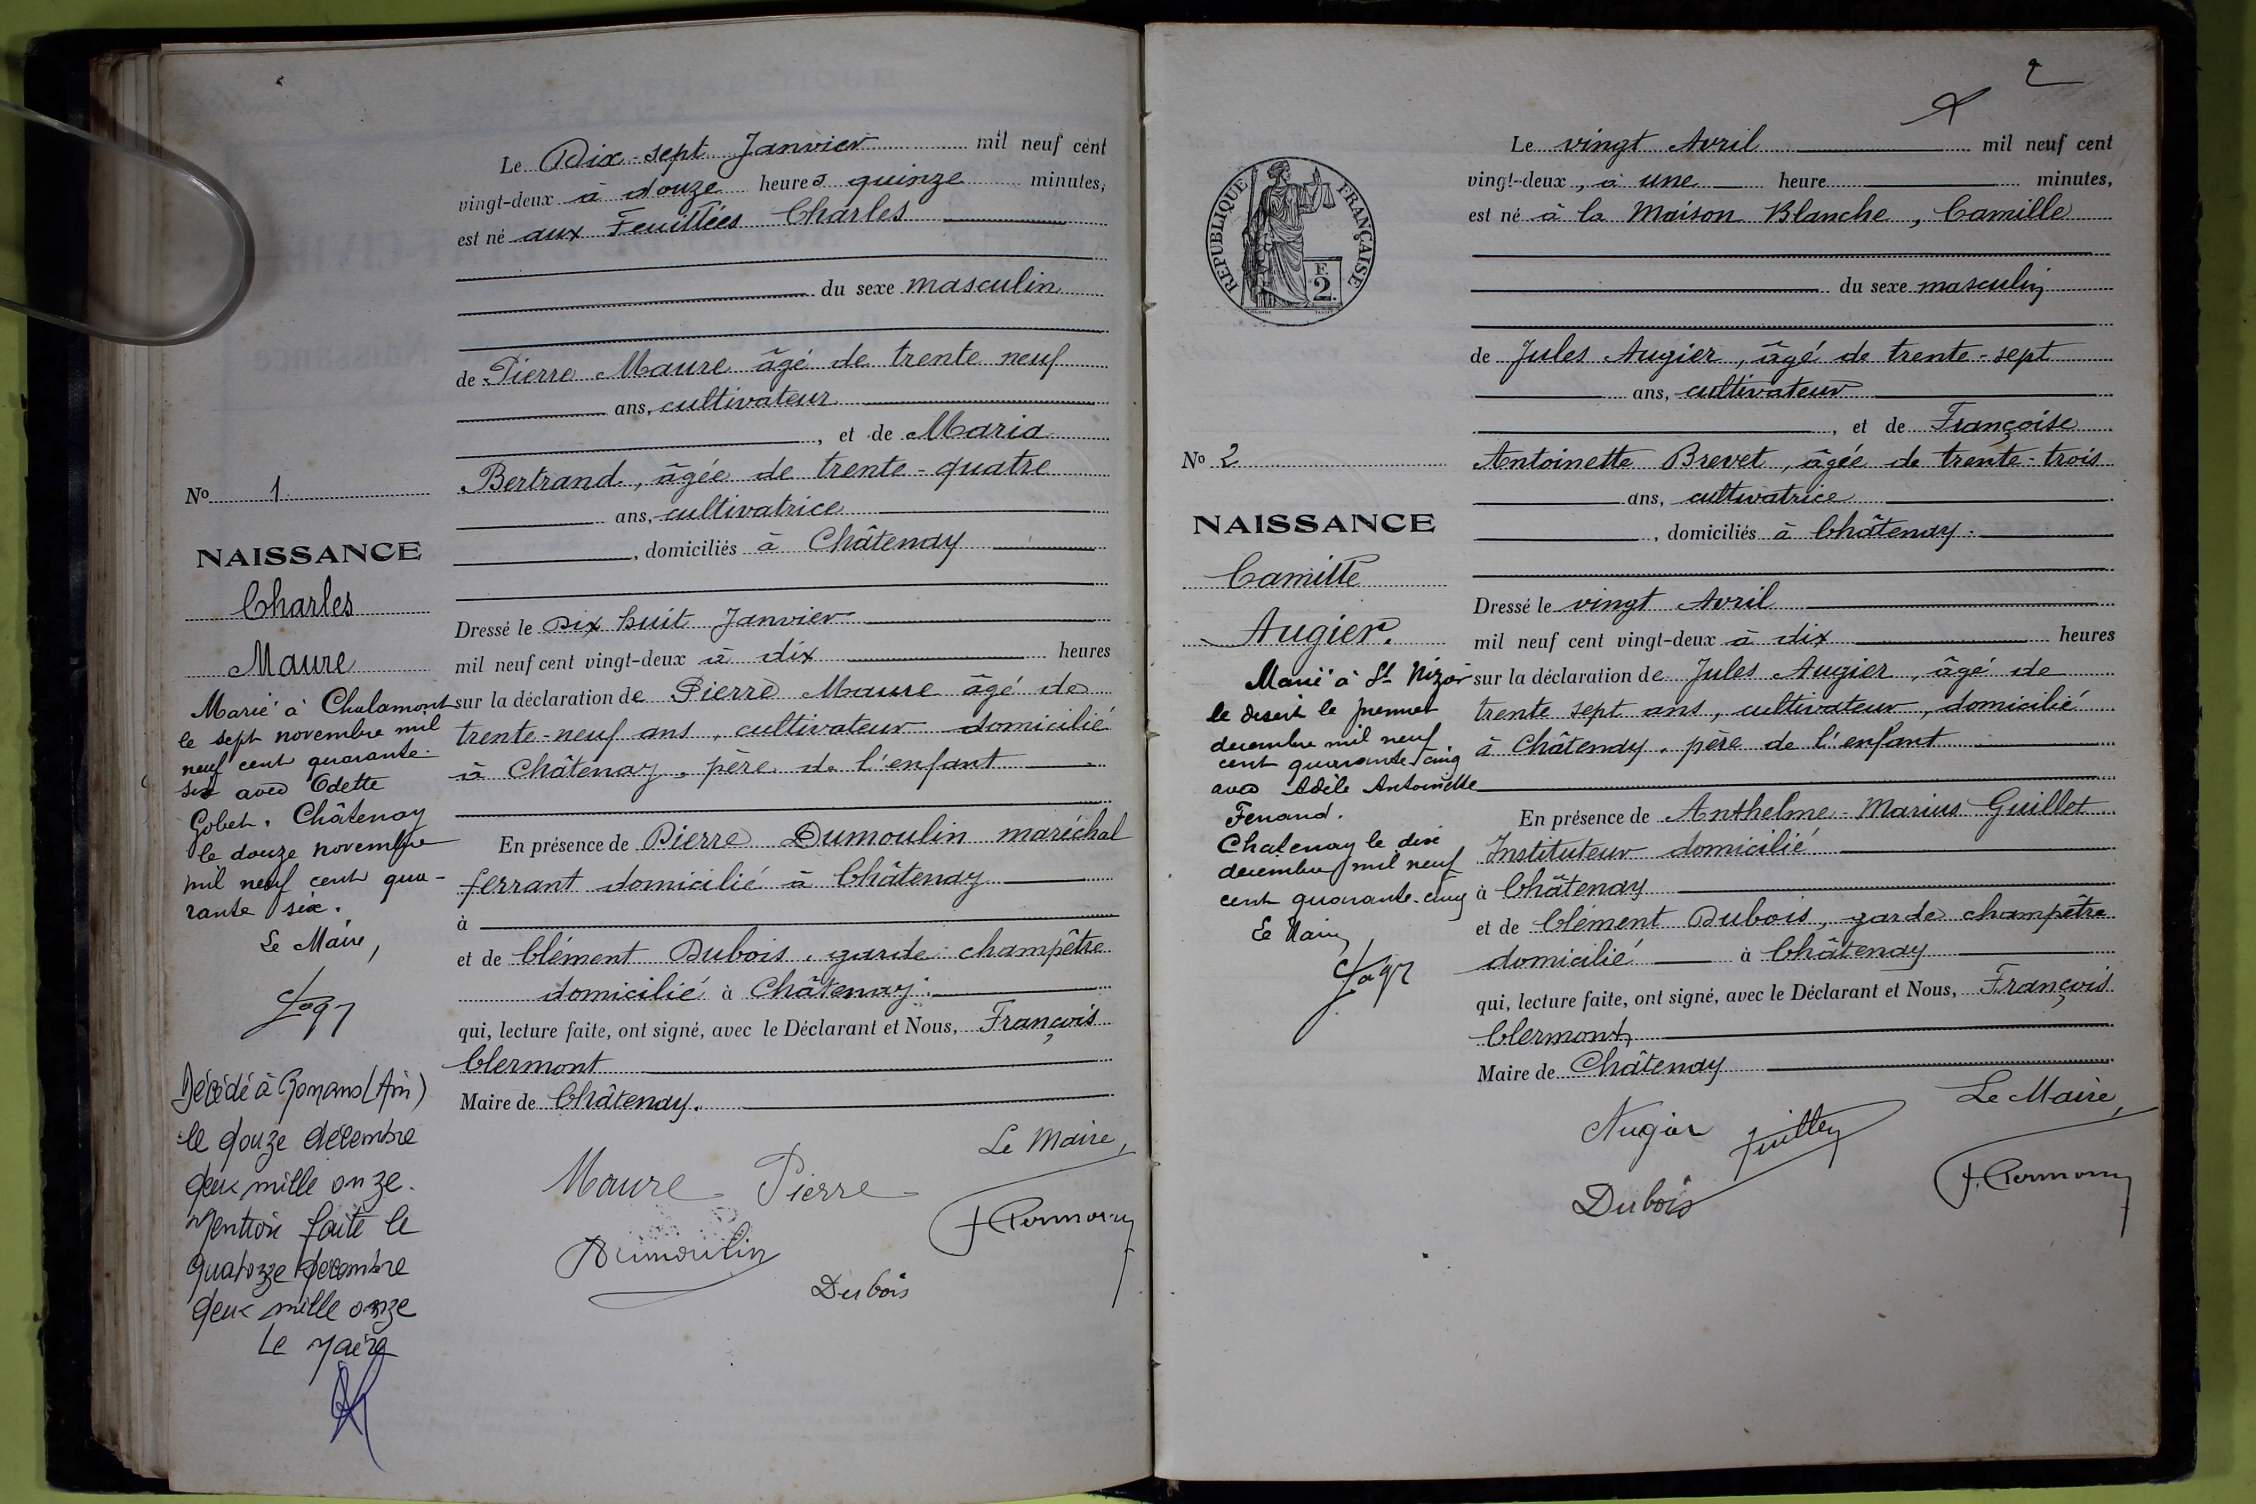 Le Dix-sept Janvier mil neuf cent
vingt-deux à douze heures quinze minutes,
est né aux Feuillées Charles
du sexe masculin
de Pierre Maure âgé de trente neuf
ans, cultivateur
, et de Maria
Bertrand, âgée de trente-quatre
ans, cultivatrice
, domiciliés à Châtenay
Dressé le Dix huit Janvier
mil neuf cent vingt-deux à dix heures
sur la déclaration de Pierre Maure âgé de
trente-neuf ans, cultivateur domicilié
à Châtenay, père de l'enfant
En présence de Pierre Dumoulin maréchal
ferrant domicilié à Châtenay
à
et de Clément Dubois, garde champêtre
domicilié à Châtenay.
qui, lecture faite, ont signé, avec le Déclarant et Nous, François
Clermont
Maire de Châtenay.
Le Maire,
Maure Pierre
F. Clermont
Dumoulin
Dubois
No 1
NAISSANCE
Charles
Maure
Marié à Chalamont
le sept novembre mil
neuf cent quarante-
six avec Odette
Gobet. Châtenay
le douze novembre
mil neuf cent qua-
rante six.
Le Maire,
Décédé à Romans (Ain)
le douze décembre
deux mille onze.
Mention faite le
quatorze décembre
deux mille onze
Le Maire
2
Le vingt Avril mil neuf cent
vingt-deux, à une heure minutes,
est né à la Maison Blanche, Camille
du sexe masculin
de Jules Augier, âgé de trente-sept
ans, cultivateur
, et de Françoise
Antoinette Brevet, âgée de trente-trois
ans, cultivatrice
, domiciliés à Châtenay.
Dressé le vingt Avril
mil neuf cent vingt-deux à dix heures
sur la déclaration de Jules Augier, âgé de
trente sept ans, cultivateur, domicilié
à Châtenay, père de l'enfant
En présence de Anthelme-Marius Guillet
Instituteur domicilié
à Châtenay
et de Clément Dubois, garde champêtre
domicilié à Châtenay
qui, lecture faite, ont signé, avec le Déclarant et Nous, François
Clermont,
Maire de Châtenay
Le Maire,
Augier Guillet
F. Clermont
Dubois
REPUBLIQUE FRANÇAISE
F.
2.
No 2
NAISSANCE
Camille
Augier.
Marié à St Nizier
le désert le premier
decembre mil neuf
cent quarante-cinq
avec Adèle Antoinette
Ferrand.
Chatenay le dix
decembre mil neuf
cent quarante-cinq
Le Maire,